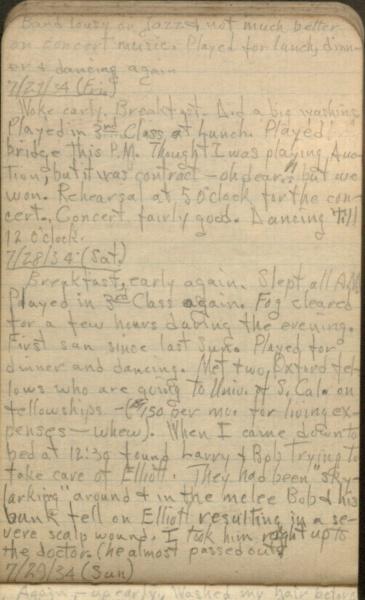 Band lousy on Jazz & not much better
on concert music. Played for lunch, dinn-
er & dancing again
7/27/34 (Fri.)
Woke early. Breakfast. Did a big washing
Played in 3rd Class at Lunch. Played
bridge this P.M. Thought I was playing Auc-
tion; but it was contract - oh dear!! but we
won. Rehearsal at 5 O'clock for the con-
cert. Concert fairly good. Dancing 'till
12 O'clock.
7/28/34 (Sat.)
Breakfast, early again. Slept all A.M.
Played in 3rd Class again. Fog cleared
for a few hours during the evening.
First sun since last Sun. Played for
dinner and dancing. Met two, Oxford fel-
lows who are going to Univ. of S. Cal. on
fellowships - ($150 per mo. for living ex-
penses - whew). When I came down to
bed at 12:30 found Larry & Bob trying to
take care of Elliott. They had been "sky-
larking" around & in the melee Bob & his
bunk fell on Elliott resulting in a se-
vere scalp wound. I took him right up to
the doctor. (he almost passed out)
7/29/34 (Sun)
Again, - up early. Washed my hair before